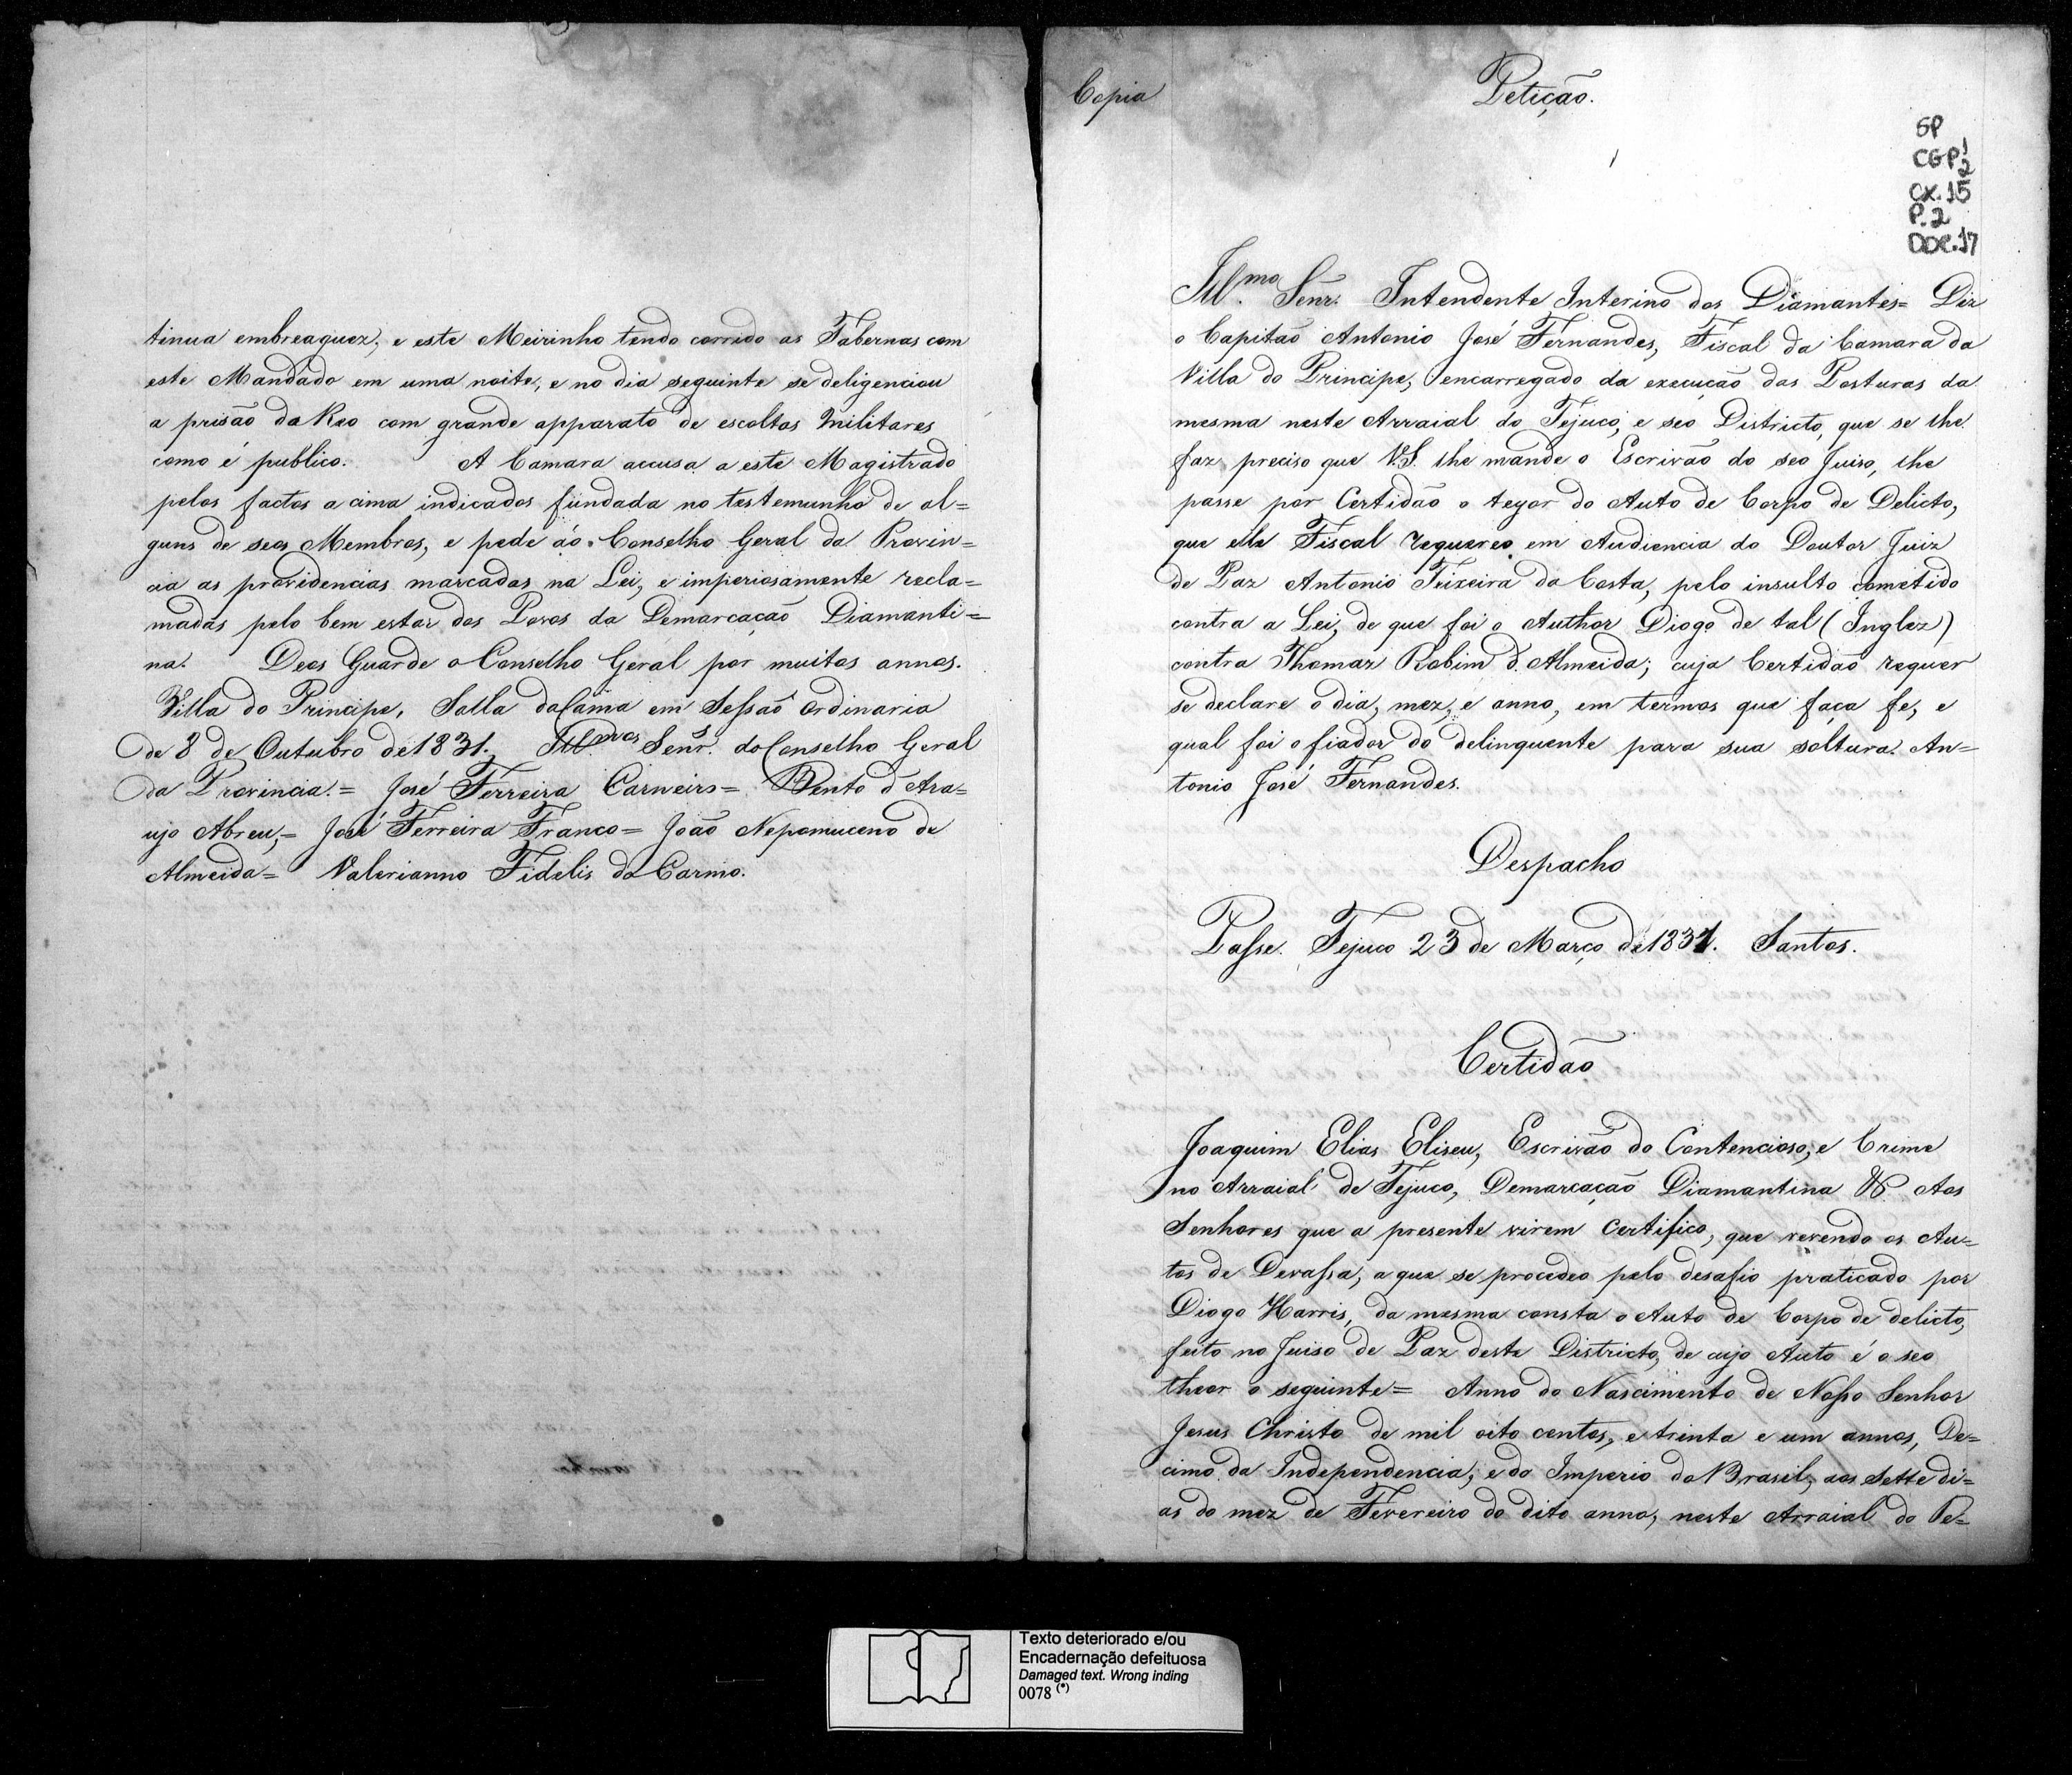 tinua embreaguez; e este Meirinho tendo corrido as Tabernas com
este Mandado em uma noite, e no dia seguinte se deligenciou
a prisão do Reo com grande apparato de escoltas Militares
como é publico. A Camara accusa a este Magistrado
pelos factos a cima indicados fundada no testemunho de al=
guns de seos Membros, e pede ao Conselho Geral da Provin=
cia as providencias marcadas na Lei, e imperiosamente recla=
madas pelo bem estar dos Povos da Demarcação Diamanti=
na. Deos Guarde o Conselho Geral por muitos annos.
Villa do Principe, Salla da Camª em Sessaõ Ordinaria
de 8 de Outubro de 1831. Illmos Senrs. do Conselho Geral
da Provincia.= José Ferreira Carneiro= Bento d'Ara=
ujo Abreu,= José Ferreira Franco= João Nepomuceno de
Almeida= Valerianno Fidelis do Carmo.
Copia
Petição.
SP
CGP 1
2
CX.15
P.2
DOC.17
Illmo. Senr. Intendente Interino dos Diamantes= Diz
o Capitaõ Antonio José Fernandes, Fiscal da Camara da
Villa do Principe, encarregado da execução das Posturas da
mesma neste Arraial do Tejuco, e seo Districto, que se lhe
faz preciso que V.S. lhe mande o Escrivão do seo Juiso, lhe
passe por Certidão o teyor do Auto de Corpo de Delicto,
que elle Fiscal requereo em Audiencia do Doutor Juiz
de Paz Antonio Teixeira da Costa, pelo insulto cometido
contra a Lei, de que foi o Author Diogo de tal (Inglez)
contra Thomaz Robim d. Almeida; cuja Certidaõ requer
se declare o dia, mez, e anno, em termos que faça fe, e
qual foi o fiador do delinquente para sua soltura. An=
tonio José Fernandes.
Despacho
Passe. Tejuco 23 de Março de 1831. Santos.
Certidaõ
Joaquim Elias Eliseu, Escrivaõ do Contencioso, e Crime
no Arraial de Tejuco, Demarcaçaõ Diamantina &. Aos
Senhores que a presente virem Certifico, que revendo os Au=
tos de Devassa, a que se procedeo pelo desafio praticado por
Diogo Harris, da mesma consta o Auto de Corpo de delicto,
feito no Juiso de Paz deste Districto, de cujo Auto é o seo
theor o seguinte= Anno do Nascimento de Nosso Senhor
Jesus Christo de mil oito centos, e trinta e um annos, De=
cimo da Independencia, e do Imperio do Brasil, aos Sette di=
as do mez de Fevereiro do dito anno, neste Arraial do Te=
Texto deteriorado e/ou
Encadernação defeituosa
Damaged text. Wrong inding
0078 (*)